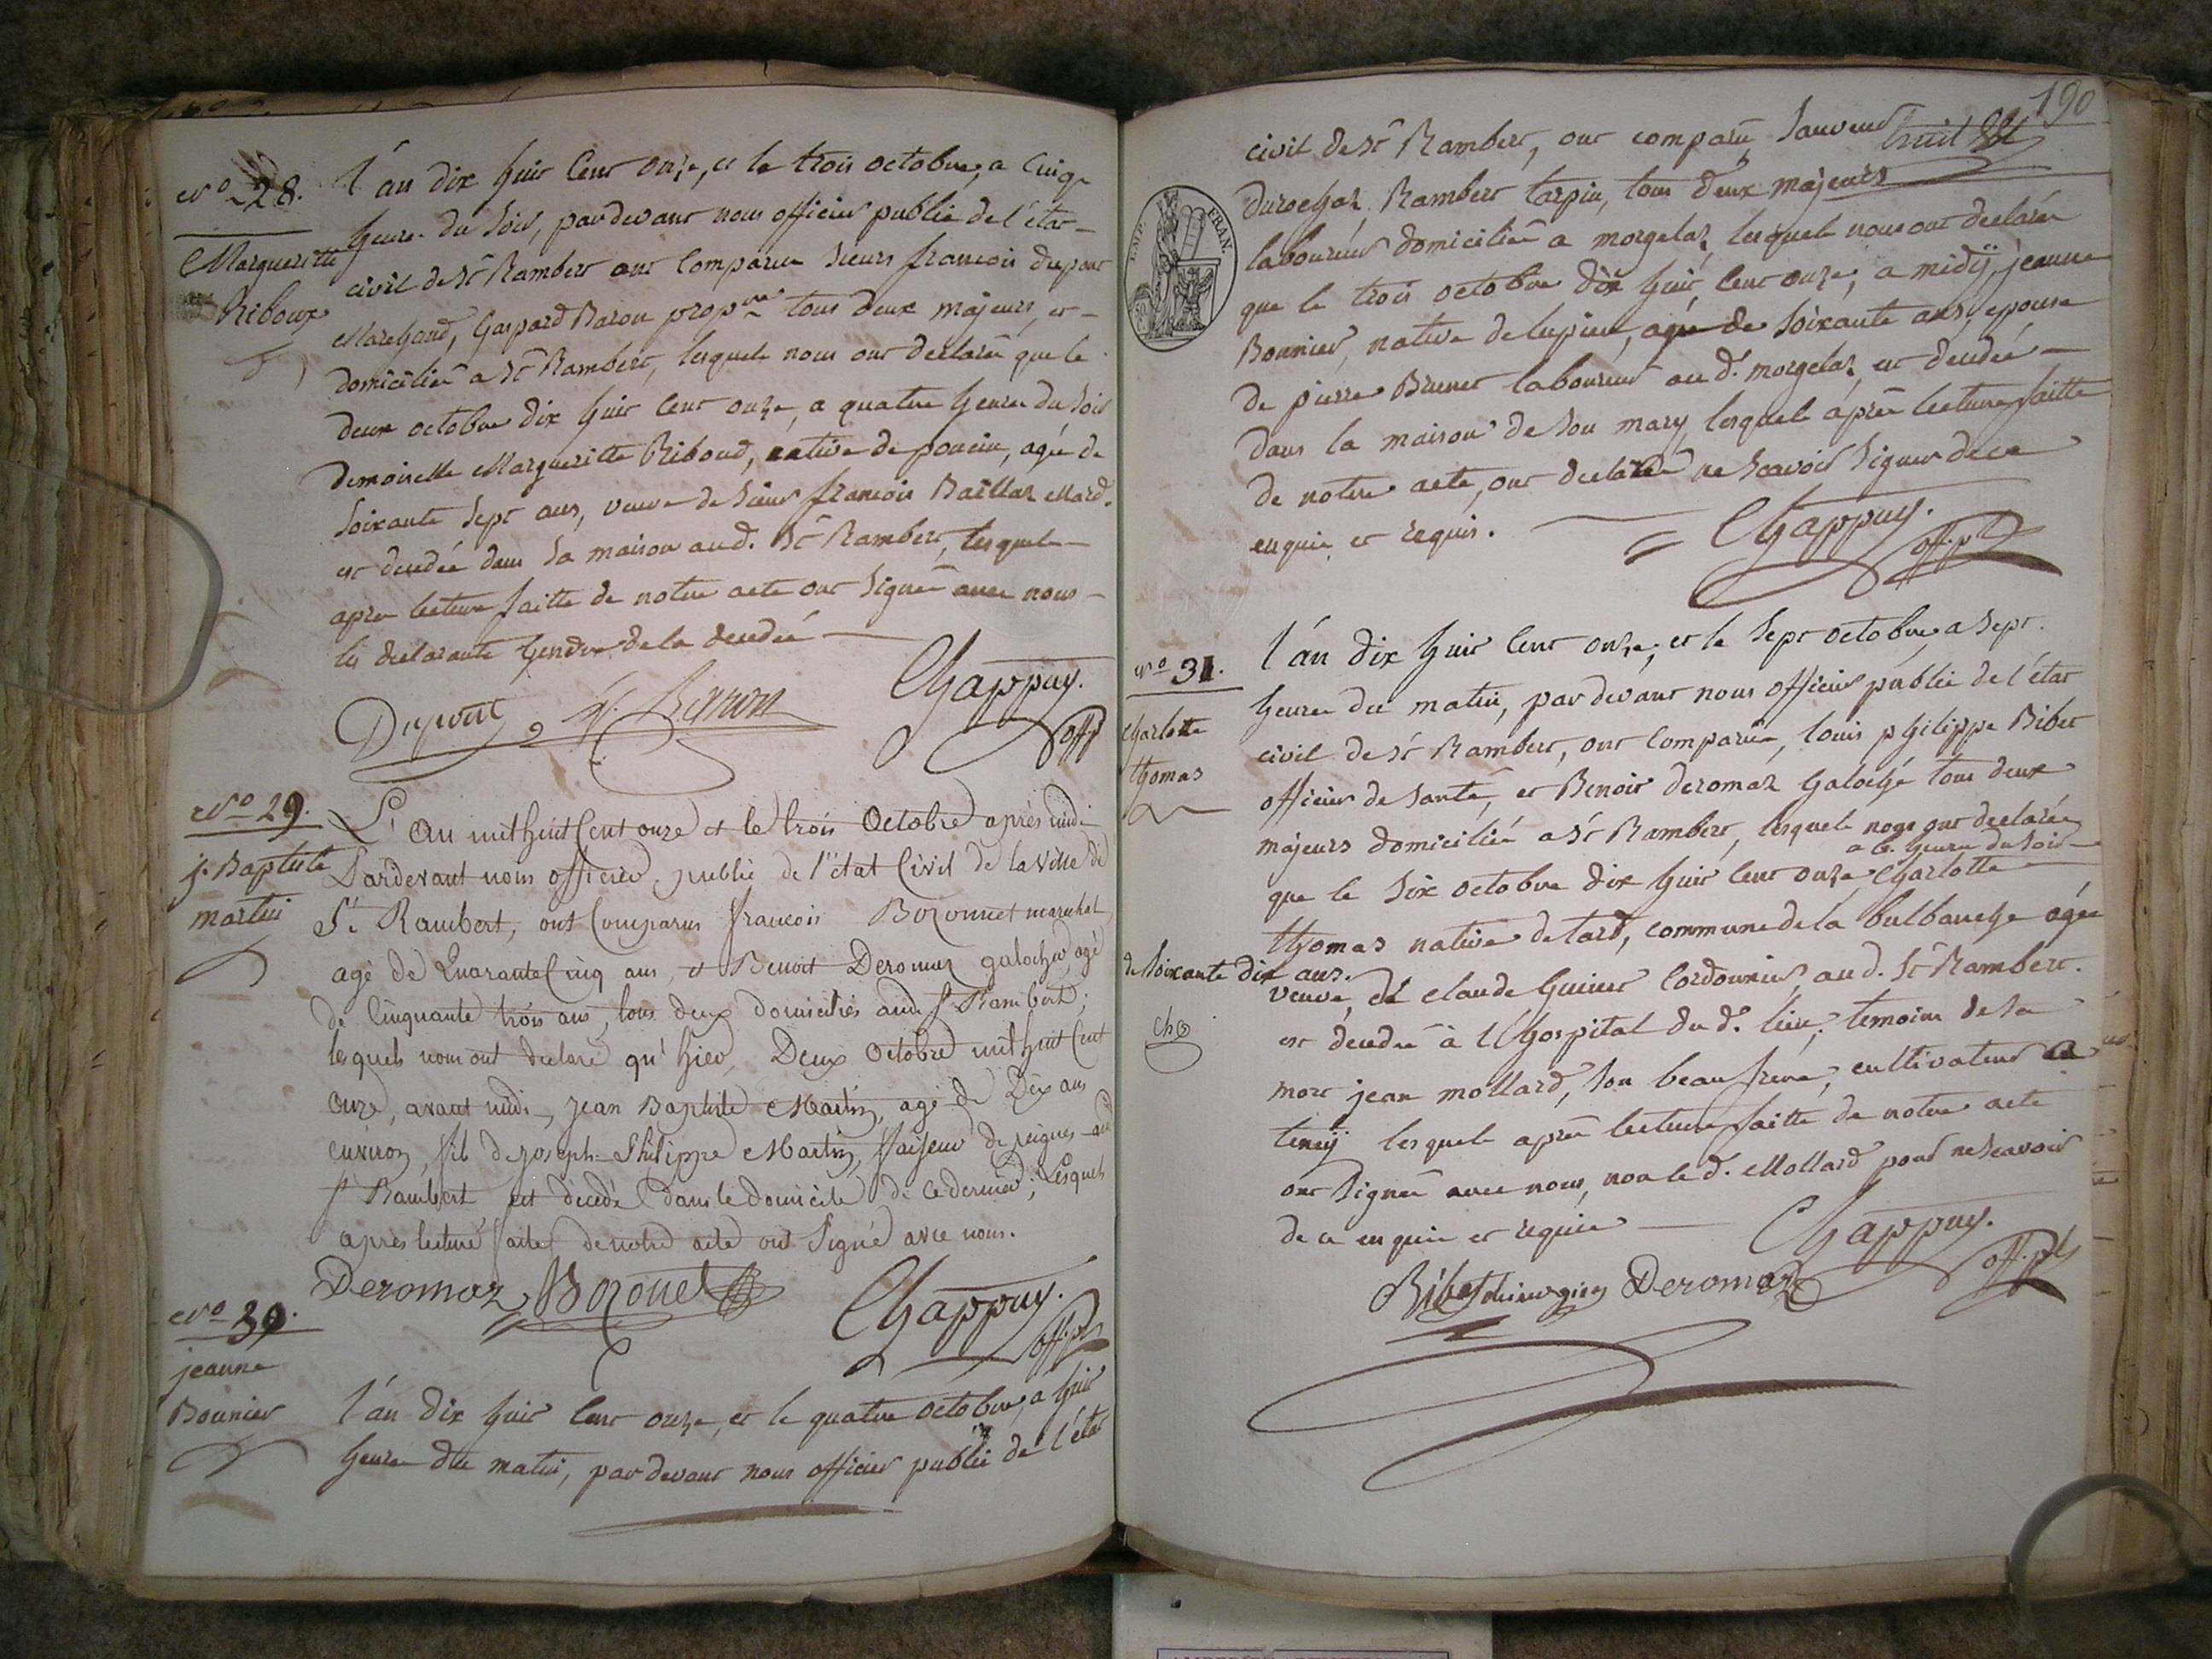 No 28.
Margueritte
Riboux
l'án dix huit cent onze, et le trois octobre, a cinq
heures du soir, pardevant nous officier public de l'état
civil de St Rambert ont comparu sieurs francois dupont
Marchand, Gaspard Baron propre tous deux majeurs, et
domicilié a St Rambert, lesquels nous ont declaré que le
deux octobre dix huit cent onze a quatre heures du soir
demoiselle Margueritte Riboud, native de poncin, agée de
soixante sept ans, veuve de sieur francois Baillat Mard.
est decedée dans sa maison aud. St Rambert, lesquels
apres lecture faitte de notre acte ont signé avec nous
les declarants gendre de la decedée
Dupont Baron Chappuy. off p
No 29.
j. Baptiste
martin
L'an mil huit cent onze et le trois Octobre après midi
Pardevant nous officier public de l'état Civil de la Ville de
St. Rambert, ont comparus francois Bozonnet marechal
agé de Quarante Cinq ans, et Benoit Deromaz galocher, agé
de Cinquante trois ans, tous deux domiciliés aud. St Rambert;
lesquels nous ont declaré qu'hier, Deux Octobre mil huit Cent
Onze, avant midi, jean Baptiste Martin, agé de Dix ans
environ, fils de joseph Philippe Martin, faiseur de peignes aud
St Rambert est décédé dans le domicile de ce dernier; Lesquels
après lecture faite de notre acte ont Signé avec nous.
Deromaz Bozonet Chappuy. off. pl
No 30.
jeanne
Bonnier
l'án dix huit cent onze, et le quatre octobre, a huit
heures du matin, pardevant nous officier public de l'état
190
civil de St Rambert, ont comparu sauveur
durochat, Rambert tarpin, tous deux majeurs
laboureurs domicilié a morgelaz, lesquels nous ont declaré
que le trois octobre dix huit cent onze, a midÿ, jeanne
Bonnier, native de lupieu, agée de soixante ans, epouse
de pierre Brunet laboureur aud. morgelaz, est decedée
dans la maison de son mary, lesquels áprés lecture faitte
de notre acte, ont declaré ne scavoir signer de ce
enquis et requis.
Chappuy. off. pl
EMP. FRAN.
No 31.
Charlotte
thomas
l'án dix huit cent onze, et le sept octobre, a sept
heures du matin, pardevant nous officier public de l'état
civil de St Rambert, ont comparu, louis philippe Bibet
officier de santé, et Benoit deromaz galoché tous deux
majeurs domicilié a St Rambert, lesquels nous ont declaré
a 6. heures du soir
que le six octobre dix huit cent onze, Charlotte
thomas native de tard, commune de la bulbanche agée
de soixante dix ans.
veuve, de claude Guinet Cordonnier, aud. St Rambert.
ch
est decedée à l'hospital du d. lieu; temoins de sa
mort jean mollard, son beau frere, cultivateur a
tenaÿ lesquels aprés lecture faitte de notre acte
ont signé avec nous, non le d. Mollard pour ne scavoir
de ce enquis et requis
Chappuy. off. pl
Bibet chirurgien Deromaz